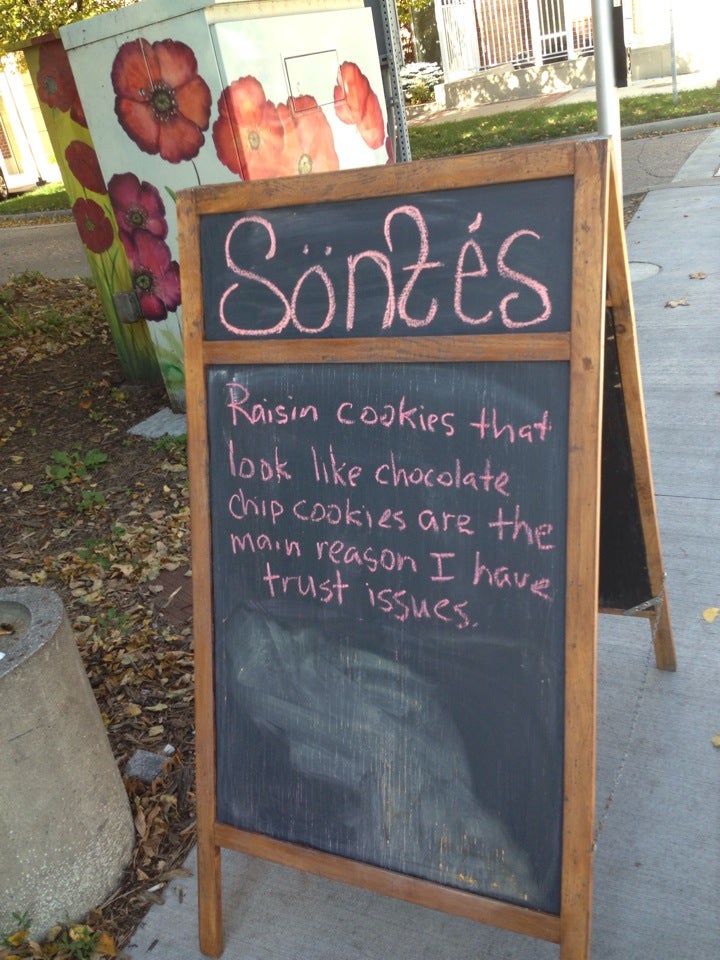 Söntés
Raisin cookies that
look like chocolate
chip cookies are the
main reason I have
trust issues.